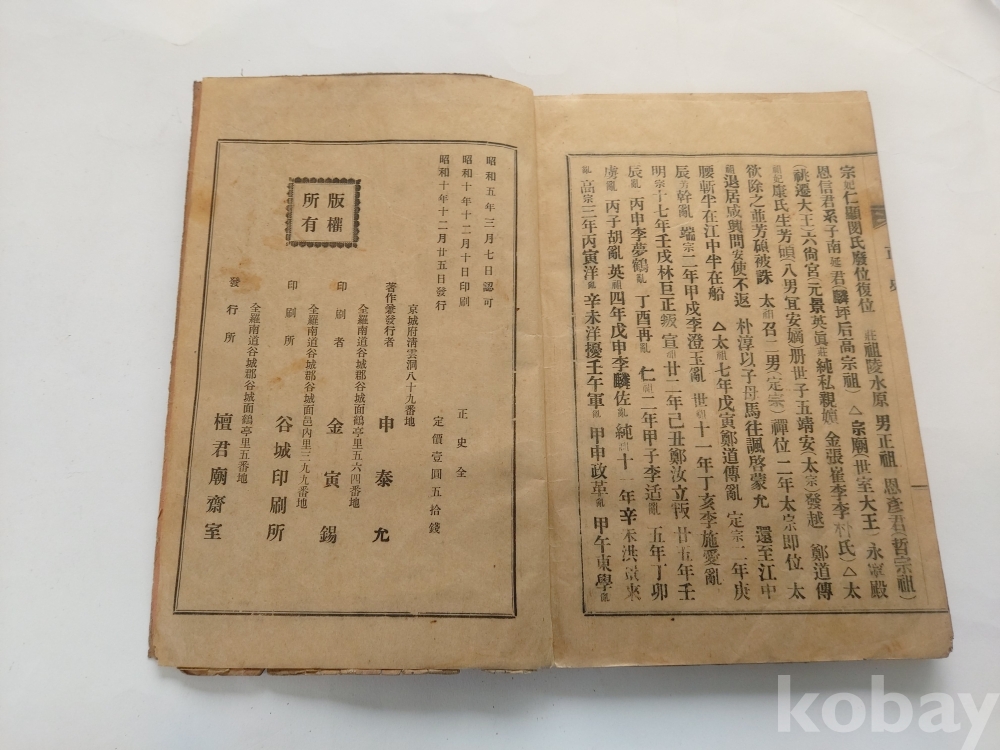 宗妃仁顯閔氏廢位復位 莊祖陵水原 男正祖 恩彥君(哲宗祖)
恩信君系子南延君(麟坪后高宗祖) △宗廟(世室大王)永寧殿
(祧遷大王)六尙宮(元景英眞莊純私親嬪 金張崔李李朴氏)△太
祖妃康氏生芳碩(八男)宜安嫡册世子五靖安(太宗)發越 鄭道傳
欲除之並芳碩被誅 太祖召二男(定宗)禪位 二年太宗即位 太
祖退居咸興問安使不返 朴淳以子母馬往諷啓蒙允 還至江中
腰斬半在江中半在船 △太祖七年戊寅鄭道傳亂 定宗二年庚
辰芳幹亂 端宗二年甲戌李澄玉亂 世祖十一年丁亥李施愛亂
明宗十七年壬戌林巨正叛 宣祖廿二年己丑鄭汝立叛 廿五年壬
辰亂 丙申李夢鶴亂 丁酉再亂 仁祖二年甲子李适亂 五年丁卯
虜亂 丙子胡亂 英祖四年戊申李麟佐亂 純祖十一年辛未洪景來
亂 高宗三年丙寅洋亂 辛未洋擾 壬午軍亂 甲申政革亂 甲午東學亂
一
昭和五年三月七日認可
昭和十年十二月十日印刷
昭和十年十二月廿五日發行
正史全
定價壹圓五拾錢
版權
所有
京城府淸雲洞八十九番地
著作兼發行者 申泰允
全羅南道谷城郡谷城面鶴亭里五六四番地
印刷者 金寅錫
全羅南道谷城郡谷城面邑內里三九九番地
印刷所 谷城印刷所
全羅南道谷城郡谷城面鶴亭里五番地
發行所 檀君廟齋室
kobay